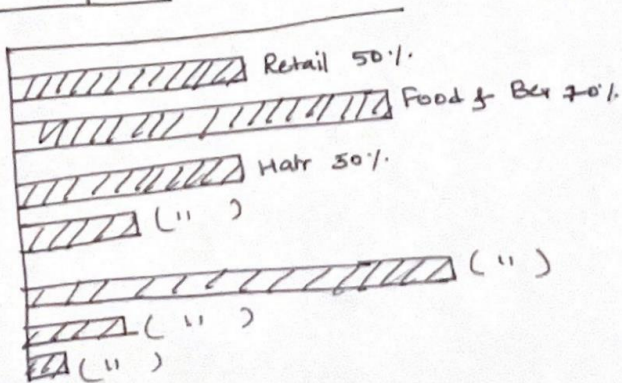 Retail 50%.
Food & Bev 70%.
Hair 50%.
(" )
(" )
(" )
(" )